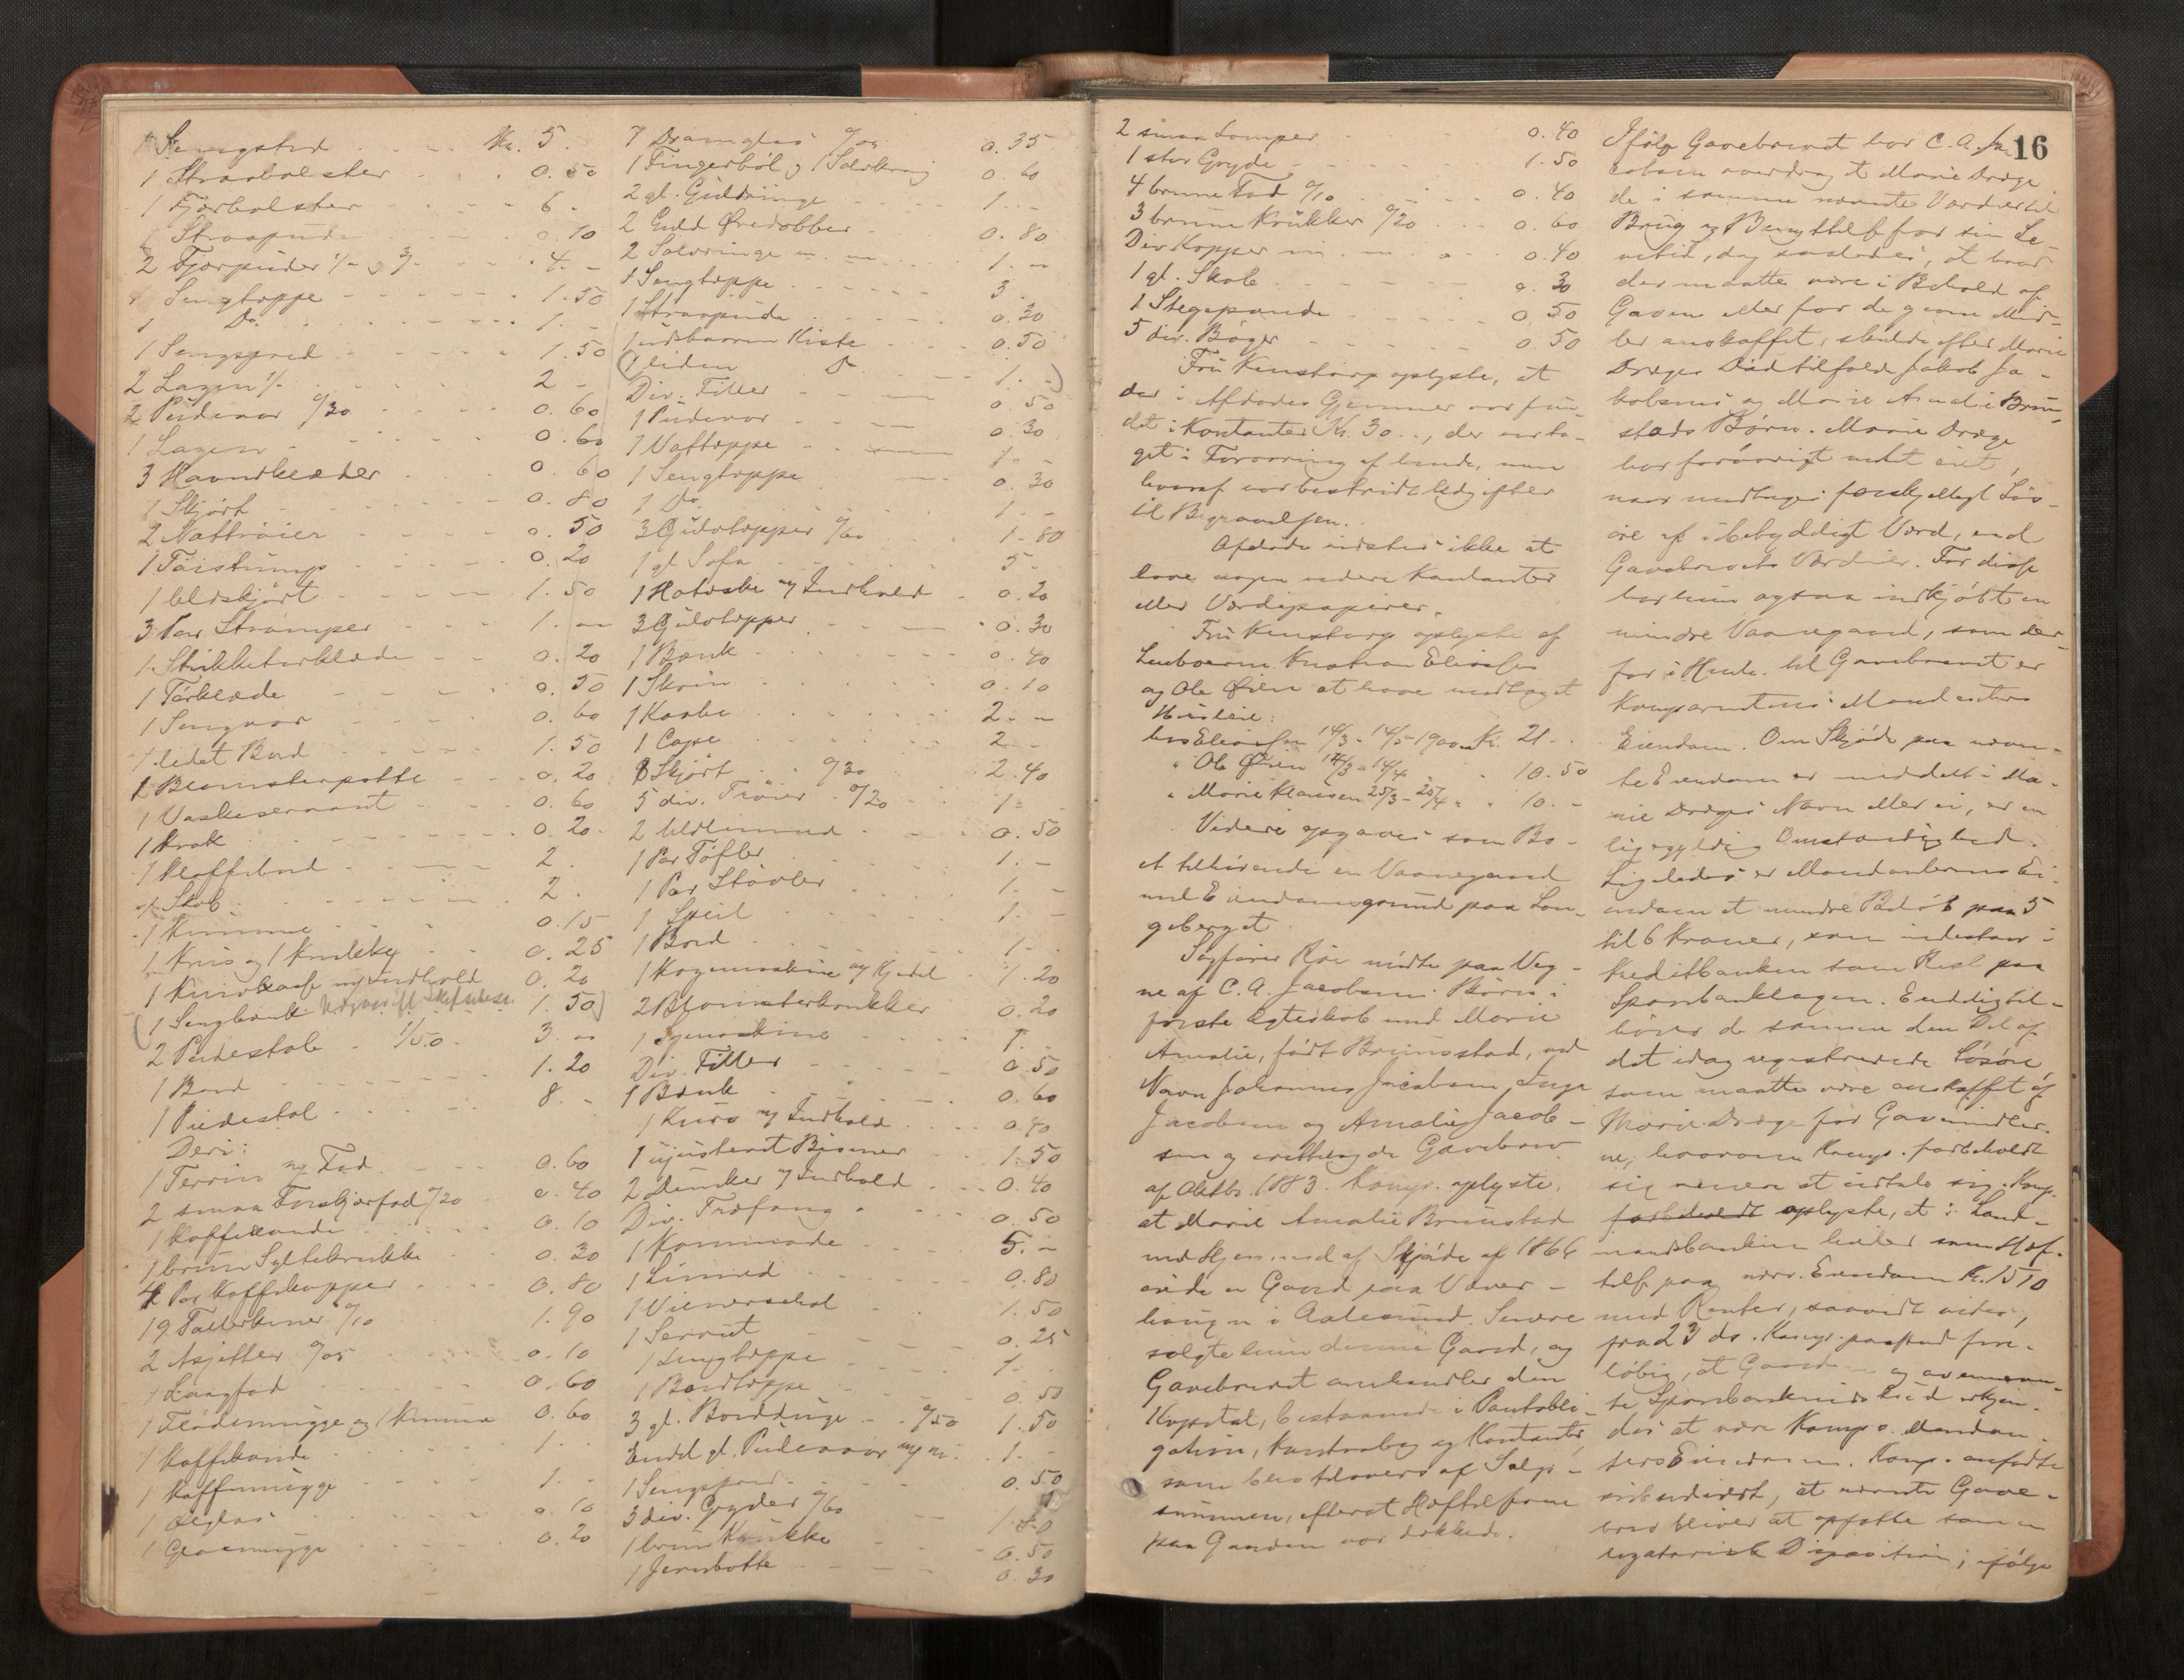 1 Sengsted Kr. 5.
1 Straabolster 0.50
1 Fjærbolster 6.
Straapude 0.10
2 Fjærpuder 1/- og 3/- 4.-
1 Sengtæppe 1.50
1 Do. 1.-
1 Sengspred 1.50
2 Lagen 1/- 2.-
2 Pudevar 0/30 0.60
1 Lagen 0.60
3 Haandklæder 0.60
1 Skjört 0.80
2 Nattröier 0.50
1 Töistump 0.20
1 Uldskjört 1.50
3 Par Strömper 1.-
1 Strikketørklæde 0.20
1 Törklæde 0.50
1 Sengvar 0.60
1 ledet Bord 1.50
2 Blomsterpotte 0.20
1 Vaskeservant 0.60
1 Krak 0.20
1 Klaffebord 2.
1 Skab 2.
1 Kumme 0.15
1 Krus og 1 0.25
1 Knivkasse m/ Indhold 0.20
(1 Sengbænk 1.50)
2 Pudestole 1/50 3.-
1 Bord 1.20
1 Piedestal 8.-
Deri:
1 Terrin m/ Fad 0.60
2 smaa Forskjærfad 0/20 0.40
1 Kaffekande 0.10
1 brun Syltekrukke 0.30
4 Par Kaffekopper 0.80
19 Tallerkener 0/10 1.90
2 Asjetter 0/05 0.10
1 Langfad 0.60
1 Flödemugge og 1 Kumme 0.60
1 Kaffekande 1.-
1 Kaffemugge 1.-
1 Ölglas 0.10
1 Glasmugge 0.20
7 Dramglas 0/05 0.35
1 Fingerböl og 1 Sölvkrus 0.60
2 gl. Guldringe 1.-
2 Guld Øredobber 0.80
2 Sølvringe m. m. 1.-
1 Sengtæppe 3.
1 Straapude 0.30
1 udskaaren Kiste 0.50
(1 liden Do. 1.-)
Div. Filler 0.50
1 Pudevar 0.30
1 Vattæppe 1.-
1 Sengtæppe 0.30
1 Do. 1.-
3 Gulvtæpper 0/60 1.80
1 gl. Sofa 5.-
1 Hateske m/ Indhold 0.20
3 Gulvtæpper 0.30
1 Bænk 0.40
1 Skrin 0.10
1 Kaabe 2.-
1 Cape 2.-
8 Skjört 0/30 2.40
5 div. Tröier 0/20 1.-
2 Uldlinned 0.50
1 Par Töfler 1.-
1 Par Stövler 1.-
1 Speil 1.-
1 Bord 1.-
1 Kogemaskine og Kjedel 1.20
2 Blomsterkrukker 0.20
1 Symaskine 7.-
Div. Filler 0.50
1 Bænk 0.60
1 Kurv m/ Indhold 0.40
1 ujusteret Bismer 1.50
2 Dunker m/ Indhold 0.40
Div. Træfang 0.50
1 Kommode 5.-
1 Linned 0.80
1 Vienerstol 1.50
1 Serviet 0.25
1 Sengtæppe 1.-
1 Bordtæppe 0.50
3 gl. Bordduge 0/50 1.50
Endel gl. Pudevar m. m. 1.-
1 Sengspred 0.50
3 div. Gryder 0/60 1.80
1 brun Krukke 0.50
1 Jernbötte 0.30
2 smaa Lamper 0.40
1 stor Gryde 1.50
4 brune Fad 0/10 0.40
3 brune Krukker 0/20 0.60
Div Kopper m. m. 0.40
1 gl. Skab 0.30
1 Stegepande 0.50
5 div. Bøger 0.50
Fru Kenstorp oplyste, at
der i Afdødes Gjemmer var fun-
det i Kontanter Kr. 30.-, der var ta-
get i Forvaring af hende, men
hvoraf var bestridt Udgifter
til Begravelsen.
Afdøde vidstes ikke at
have nogen videre Kontanter
eller Værdipapirer.
Fru Kenstorp oplyste af
Leieboerne Kristian Eliassen
og Ole Øien at have modtaget
Husleie:
hos Eliassen 14/3 - 14/5 1900 Kr. 21.-
" Ole Øien 14/3 - 14/4 " " 10.50
" Marie Klausen 25/3 - 25/4 " " 10.-
Videre opgaves som Bo-
et tilhörende en Vaanegaard
med Eiendomsgrund paa Lan-
geberget.
Sagfører Röe mödte paa Veg-
ne af C. A. Jacobsens Börn i
første Egteskab med Marie
Amalie, født Brunstad, ved
Navn Johannes Jacobsen, Inga
Jacobsen og Amalie Jacob-
sen og fremlagde Gavebrev
af Oktbr. 1883. Komp. oplyste,
at Marie Amalie Brunstad
med Hjemmel af Skjöde af 1866
eiede en Gaard paa Vaner-
haugen i Aalesund. Senere
solgte hun denne Gaard, og
Gavebrevet omhandler den
Kapital, bestaaende i Pantobli-
gation, Kontrabog og Kontanter,
som blev tilovers af Salgs-
summen, efterat Heftelserne
paa Gaarden var dækkede.
16
Ifölge Gavebrevet har C. A. Ja-
cobsen overdraget Marie Dræge
de i samme nævnte Værdier til
Brug og Benyttelse for sin Le-
vetid, dog saaledes, at hvad
der maatte være i Behold af
Gaven eller for de givne Mid-
ler anskaffet, skulde efter Marie
Dræges Død tilfalde Jakob Ja-
kobsens og Marie Amalie Brun-
stads Börn. Marie Dræge
har forövrigt intet eiet,
naar undtages forskjelligt Lös-
öre af ubetydeligt Værd, end
Gavebrevets Værdier. For disse
har hun ogsaa indkjöbt en
mindre Vaanegaard, som der-
for i Henh. til Gavebrevet er
Komparentens Mandanters
Eiendom. Om Skjöde paa nævn-
te Eiendom er meddelt i Ma-
rie Dræges Navn eller ei, er en
ligegyldig Omstændighed.
Ligeledes er Mandanternes Ei-
endom et mindre Belöb paa 5
til 6 Kroner, som indestaar i
Kreditbanken som Rest paa
Sparebanklagen. Endelig til-
hörer de samme den Del af
det idag registrerede Lösöre
som maatte være anskaffet af
Marie Dræge for Gavemidler-
ne, hvorom Komp. forbeholdt
sig senere at udtale sig. Komp.
forbeholdt oplyste, at i Land-
mandsbanken hviler som Hef-
telse paa nævn. Eiendom Kr. 1570
med Renter, saavidt vides,
fra 23 ds. Komp. paastod fore-
löbig, at Gaarden og ovennævn-
te Sparebankindskud erkjen-
des at være Komps. Mandan-
ters Eiendom. Komp. anførte
endvidere, at nævnte Gave-
brev bliver at opfatte som en
legatarisk Disposition; ifölge